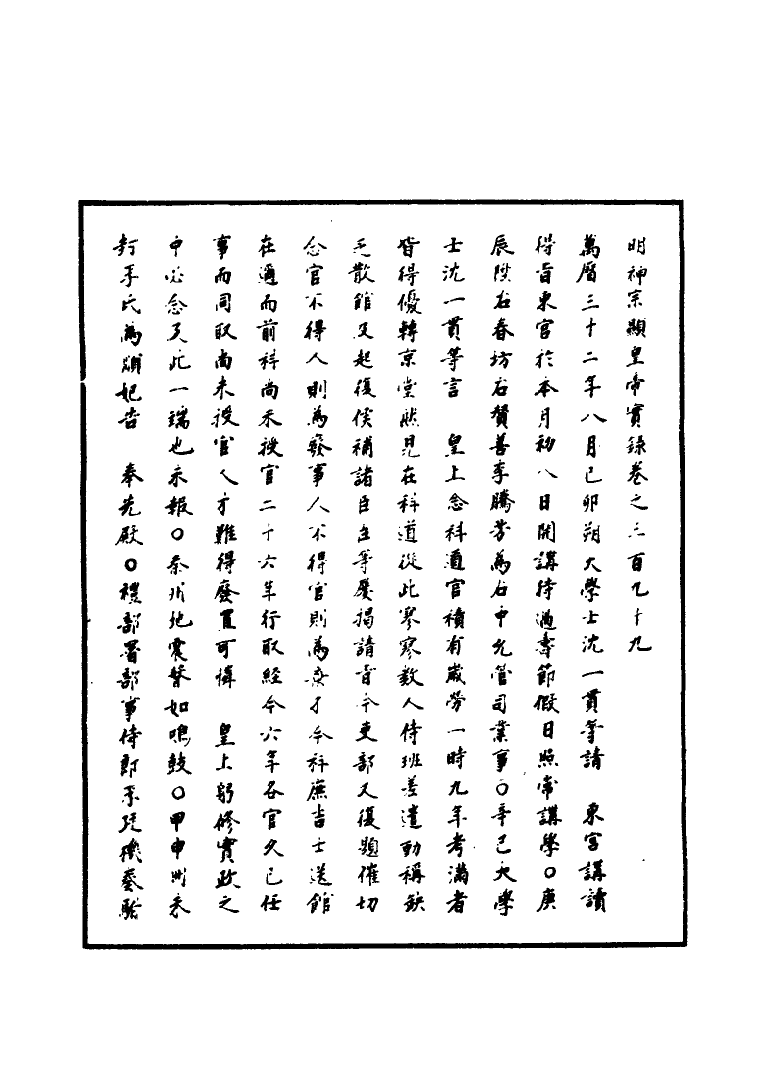 明神宗顯皇帝實錄卷之三百九十九
萬曆三十二年八月己卯朔大學士沈一貫等請　東宮講讀
得旨東宮於本月初八日開講待過壽節假日照常講學○庚
辰陞右春坊右贊善李騰芳為右中允管司業事○辛巳大學
士沈一貫等言　皇上念科道官積有歲勞一時九年考滿者
皆得優轉京堂然見在科道從此寥寥數人侍班差遣動稱缺
乏散館及起復候補諸臣臣等屢揭請旨今吏部又復題催切
念官不得人則為廢事人不得官則為棄才今科庶吉士送館
在邇而前科尚未授官二十六年行取經今六年各官久已任
事而同取尚未授官人才難得廢置可惜　皇上躬修實政之
中必念及此一端也未報○秦州地震聲如鳴鼓○甲申以未
封李氏為順妃告　奉先殿○禮部署部事侍郎李廷機奏